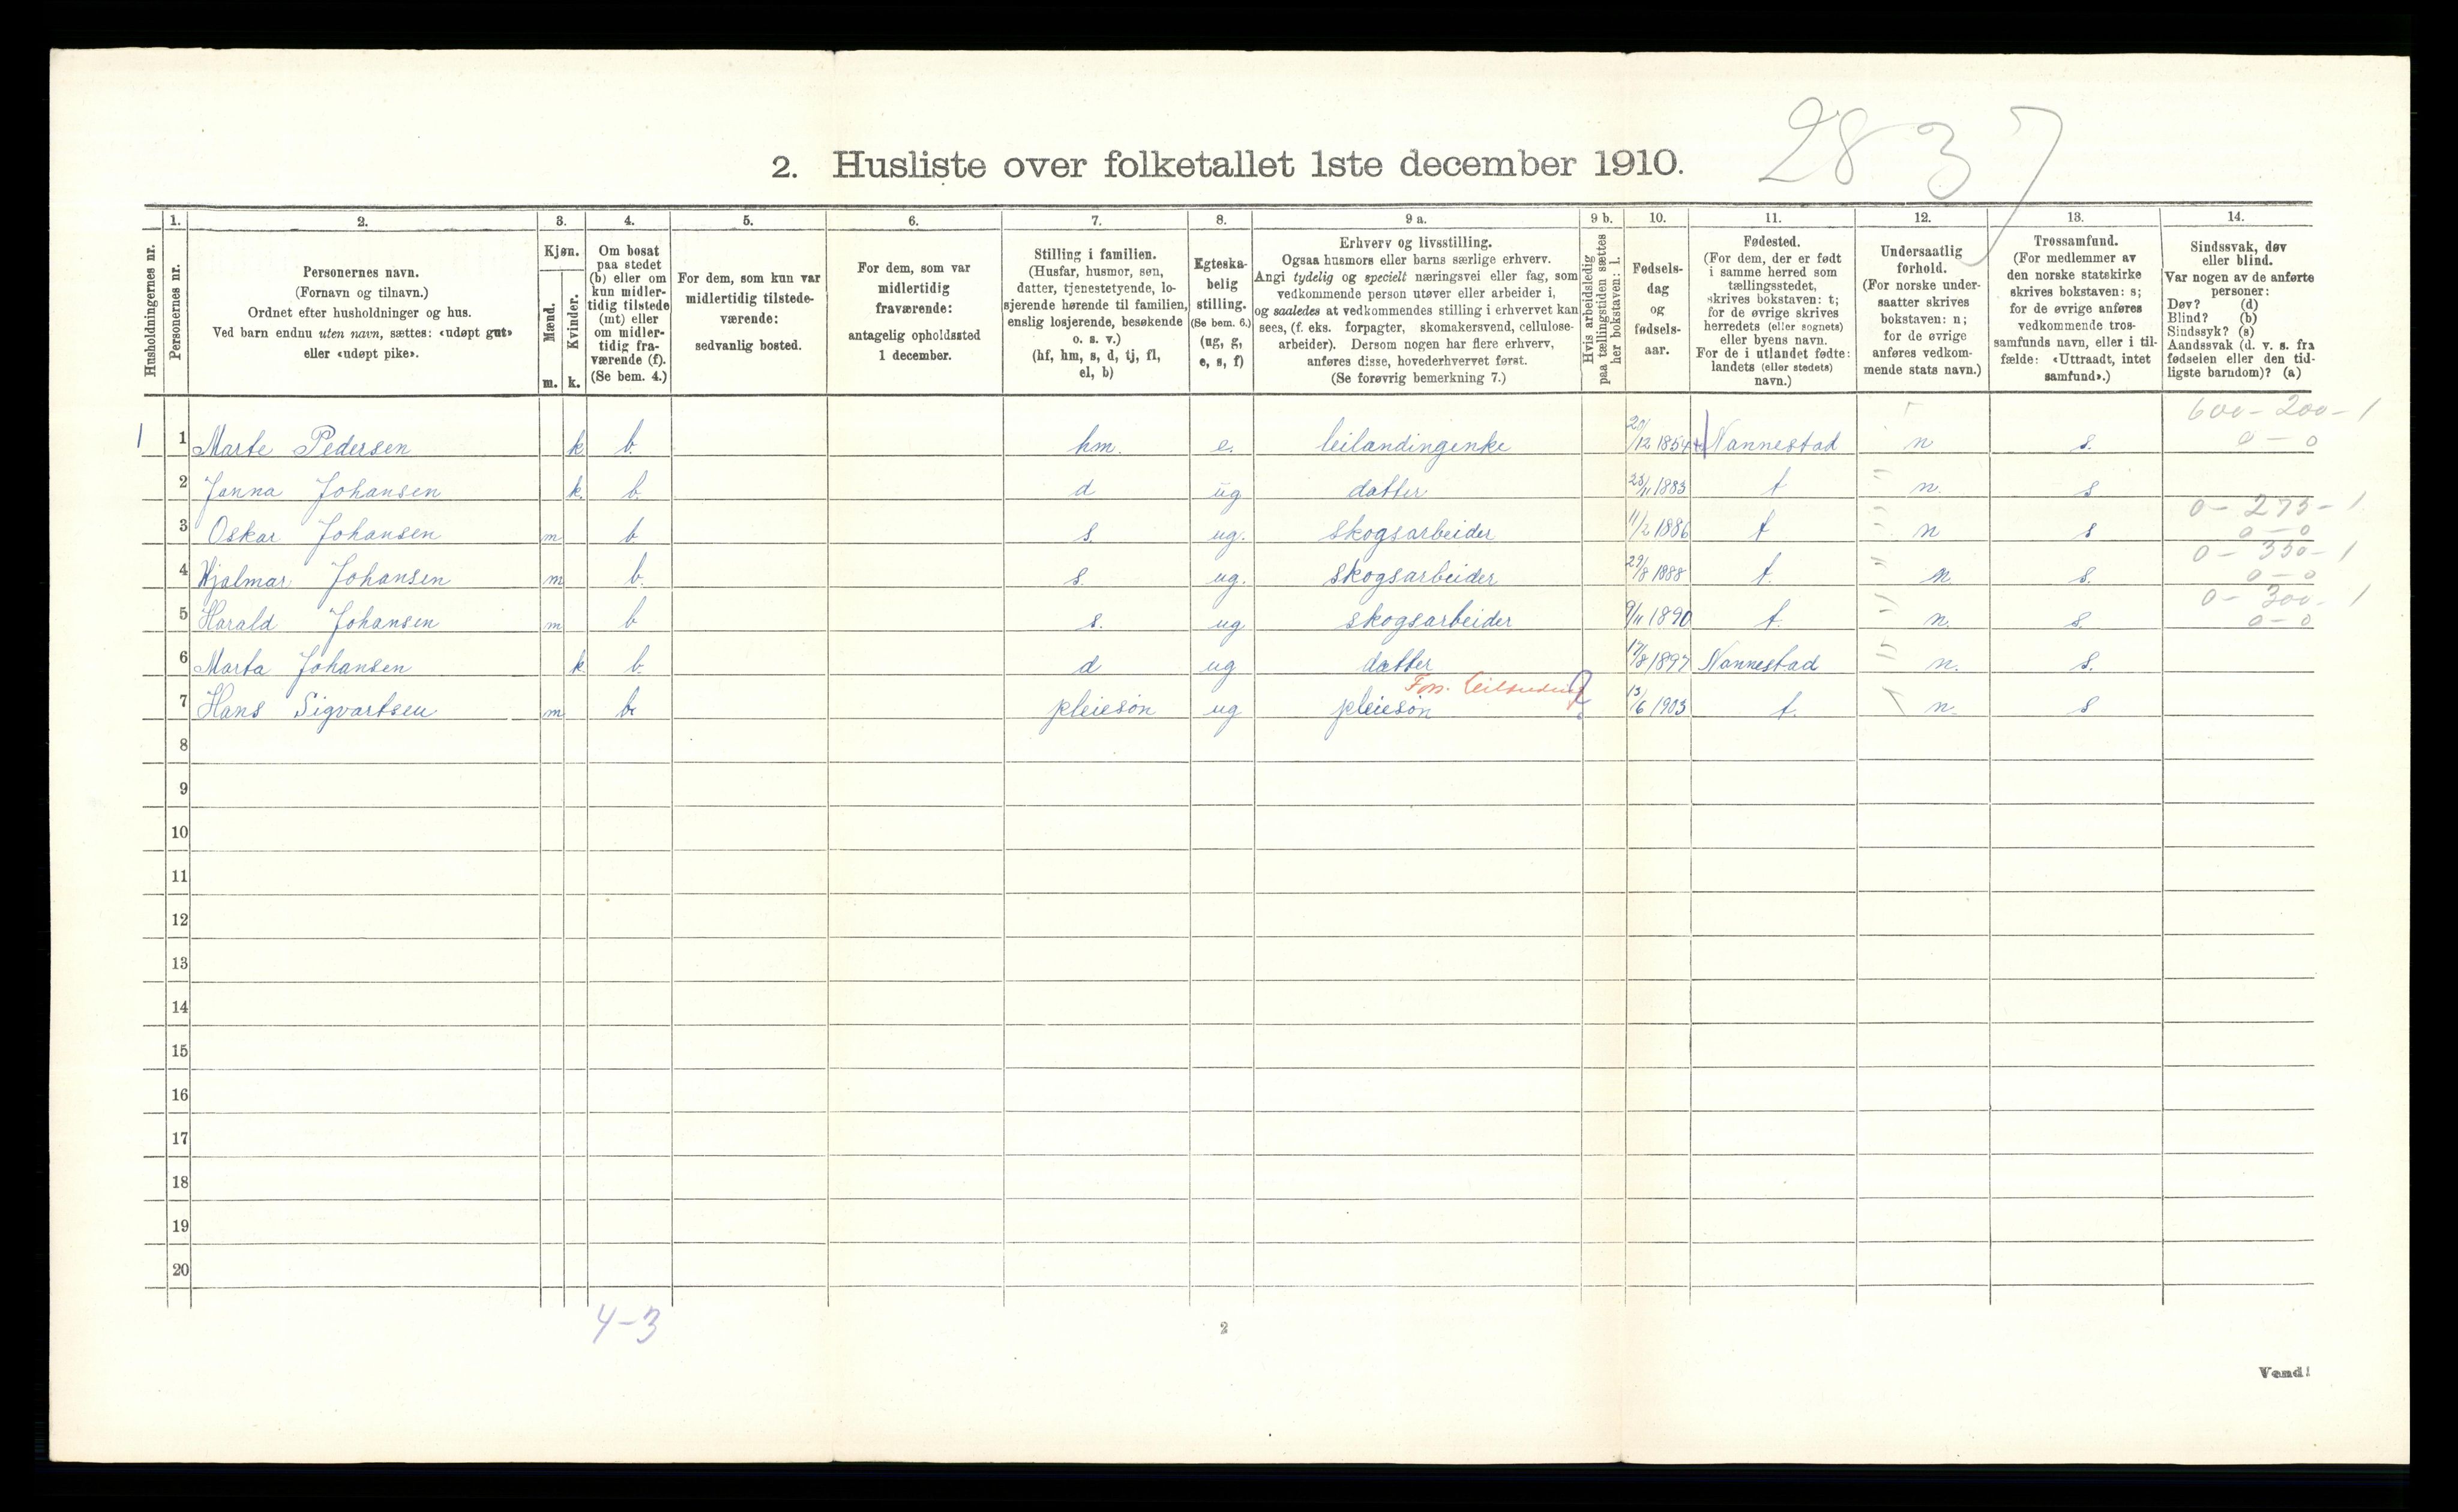 2837
2. Husliste over folketallet 1ste december 1910.
Husholdningernes nr.
1.
Personernes nr.
2.
Personernes navn.
(Fornavn og tilnavn.)
Ordnet efter husholdninger og hus.
Ved barn endnu uten navn, sættes: «udøpt gut»
eller «udøpt pike».
3.
Kjøn.
Mænd.
Kvinder.
m. k.
4.
Om bosat
paa stedet
(b) eller om
kun midler-
tidig tilstede
(mt) eller
om midler-
tidig fra-
værende (f).
(Se bem. 4.)
5.
For dem, som kun var
midlertidig tilstede-
værende:
sedvanlig bosted.
6.
For dem, som var
midlertidig
fraværende:
antagelig opholdssted
1 december.
7.
Stilling i familien.
(Husfar, husmor, søn,
datter, tjenestetyende, lo-
sjerende hørende til familien,
enslig losjerende, besøkende
o. s. v.)
(hf, hm, s, d, tj, fl,
el, b)
8.
Egteska-
belig
stilling.
(Se bem. 6.)
(ug, g,
e, s, f)
9 a.
Erhverv og livsstilling.
Ogsaa husmors eller barns særlige erhverv.
Angi tydelig og specielt næringsvei eller fag, som
vedkommende person utøver eller arbeider i,
og saaledes at vedkommendes stilling i erhvervet kan
sees, (f. eks. forpagter, skomakersvend, cellulose-
arbeider). Dersom nogen har flere erhverv,
anføres disse, hovederhvervet først.
(Se forøvrig bemerkning 7.)
9 b.
Hvis arbeidsledig
paa tællingstiden sættes
her bokstaven: l.
10.
Fødsels-
dag
og
fødsels-
aar.
11.
Fødested.
(For dem, der er født
i samme herred som
tællingsstedet,
skrives bokstaven: t;
for de øvrige skrives
herredets (eller sognets)
eller byens navn.
For de i utlandet fødte:
landets (eller stedets)
navn.)
12.
Undersaatlig
forhold.
(For norske under-
saatter skrives
bokstaven: n;
for de øvrige
anføres vedkom-
mende stats navn.)
13.
Trossamfund.
(For medlemmer av
den norske statskirke
skrives bokstaven: s;
for de øvrige anføres
vedkommende tros-
samfunds navn, eller i til-
fælde: «Uttraadt, intet
samfund».)
14.
Sindssvak, døv
eller blind.
Var nogen av de anførte
personer:
Døv? (d)
Blind? (b)
Sindssyk? (s)
Aandssvak (d. v. s. fra
fødselen eller den tid-
ligste barndom)? (a)
600 - 200 - 1
1 1 Marte Pedersen k b. hm. e. leilandingenke 20/12 1854 Nannestad n s. 0 - 0
2 Janna Johansen k. b. d ug datter 23/11 1883 t n. s
0 - 275 - 1
3 Oskar Johansen m b s. ug. skogsarbeider 11/2 1886 t n s 0 - 0
0 - 350 - 1
4 Hjalmar Johansen m b. s. ug. skogsarbeider 29/8 1888 t. n. s. 0 - 0
0 - 300 - 1
5 Harald Johansen m b s. ug skogsarbeider 9/11 1890 t. n. s. 0 - 0
6 Marta Johansen k b. d ug datter 17/8 1897 Nannestad n. s.
7 Hans Sigvartsen m b. pleiesøn ug pleiesøn 13/6 1903 t. n. s
8
9
10
11
12
13
14
15
16
17
18
19
20
4-3
2
Vend!